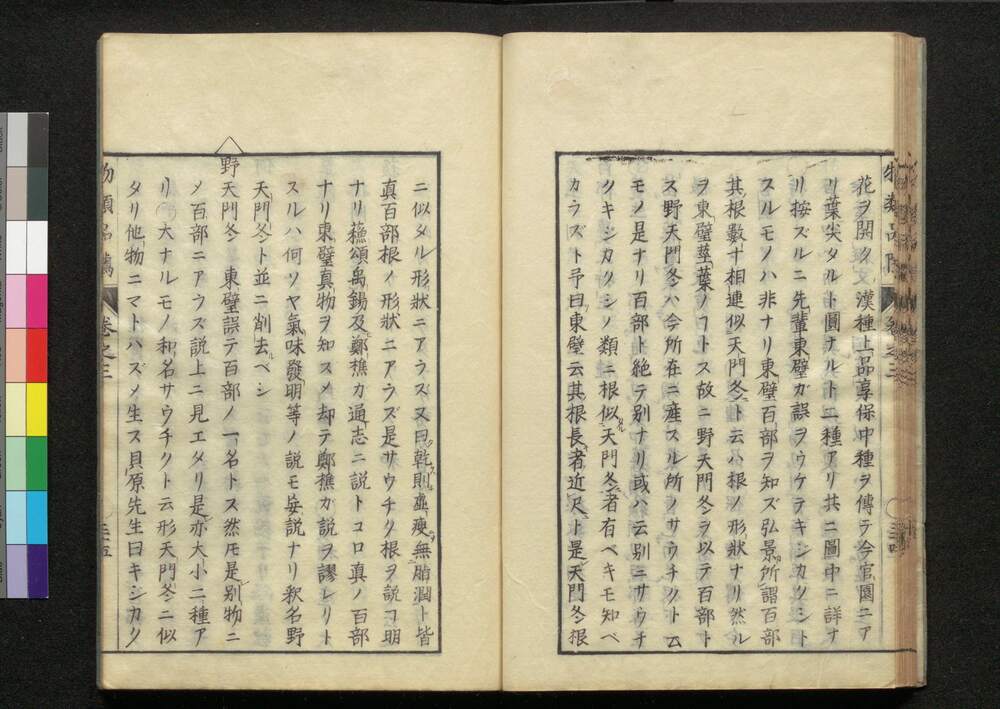 花ヲ開ク 漢種上品享保中種ヲ傳テ今官園ニア
リ葉尖タルト圓ナルト二種アリ共ニ圖中ニ詳ナ
リ按ズルニ先輩東璧ガ誤ヲウケテキシカクシト
スルモノハ非ナリ東璧百部ヲ知ズ弘景所謂百部
其根數十相連似天門冬ト云ハ根ノ形狀ナリ然ル
ヲ東璧莖葉ノコトトス故ニ野天門冬ヲ以テ百部ト
ス野天門冬ハ今所在ニ産スル所ノサウチクト云
モノ是ナリ百部ト絶テ別ナリ或ハ云別ニサウチ
クキシカクシノ類ニ根似天門冬者有ベキモ知ベ
カラズト予曰東璧云其根長者近尺ト是天門冬根
物類品隲 卷之三
ニ似タル形狀ニアラズ又曰乾則虛瘦無脂潤ト皆
真百部根ノ形狀ニアラズ是サウチク根ヲ説コ明
ナリ蘓頌禹錫及鄭樵カ通志ニ説トコロ真ノ百部
ナリ東璧真物ヲ知スメ却テ鄭樵カ説ヲ謬レリト
スルハ何ソヤ氣味發明等ノ説モ妄説ナリ釈名野
天門冬ト並ニ削去ベシ
野天門冬 東璧誤テ百部ノ一名トス然𪜈是別物ニ
メ百部ニアラズ説上ニ見エタリ是亦大小二種ア
リ大ナルモノ和名サウチクト云形天門冬ニ似
タリ他物ニマトハズメ生ス貝原先生曰キシカク
物類品隲 卷之三